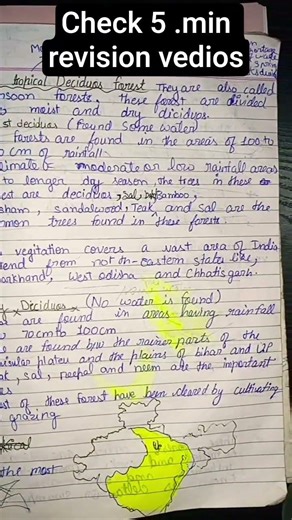 Check 5 .min
revision vedios
tropical Deciduos forest They are also called
nsoon forests, these forest are divided
moist and dry diciduos.
st deciduos (Found Some water)
forests are found in the areas of 100 to
cm of rainfall
climate moderate or low rainfall areas
to longer dry season, the trees in these
est are deciduos, sal, bamboo,
sham, sandalwood, Teak and Sal are the
mmon trees found in these forests.
vegitation covers a vast area of India
tend from north-eastern state like,
arkhand, West odisha and Chhatisgarh.
Deciduos (No water is found)
are found in areas having rainfall
70cm to 100cm
are found b/w the rainier parts of the
insular plateu and the plains of bihar and UP
ak, sal, peepal and neem are the important
es
st of these forest have been cleared by cultivating
grazing
the most